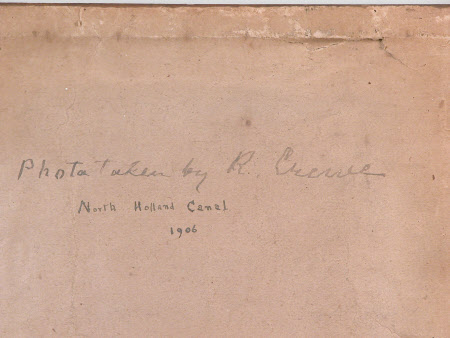 Photo taken by R.
North Holland Canal
1906